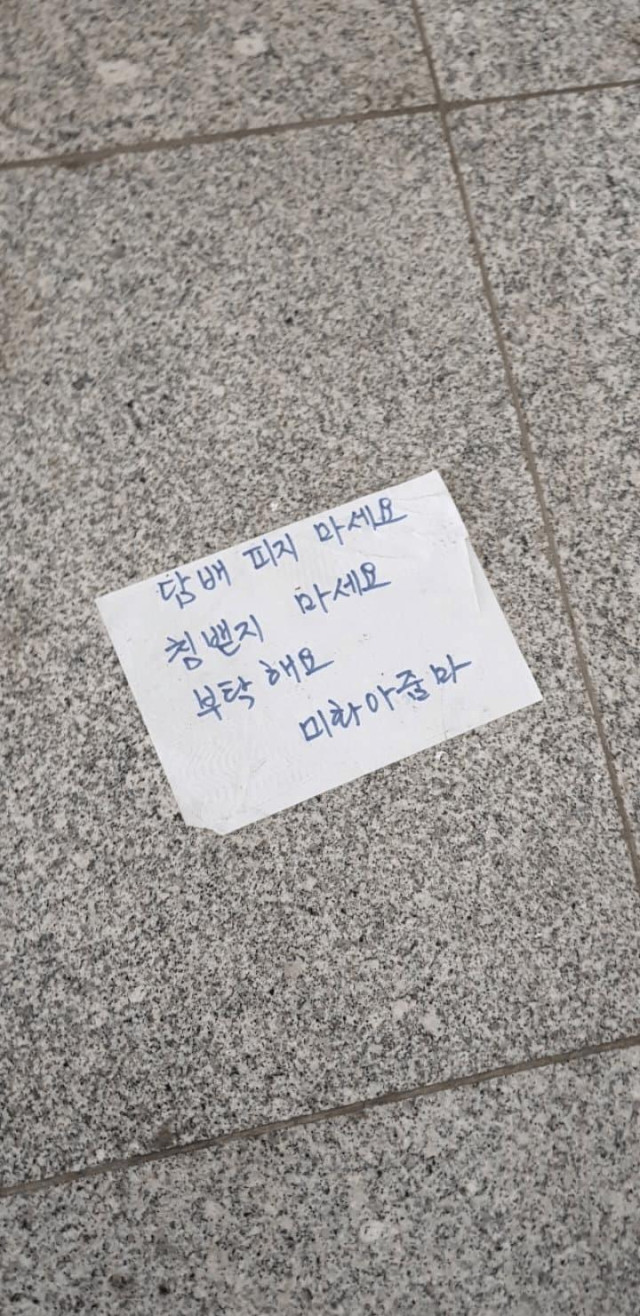 담배 피지 마세요
침밷지 마세요
부탁해요
미화아줄마